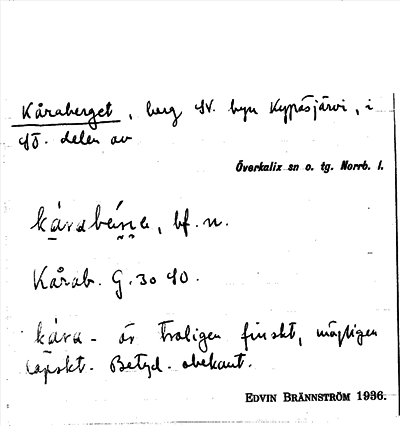 Kåraberget, berg N. byn Kypåsjärvi, i
NÖ. delen av
Överkalix sn o. tg. Norrb. l.
kåraba̰rn̰e, bf. n.
Kårab. G. 30 NO.
kåra- är troligen finskt, möjligen
lapskt. Betyd. obekant.
EDVIN BRÄNNSTRÖM 1936.